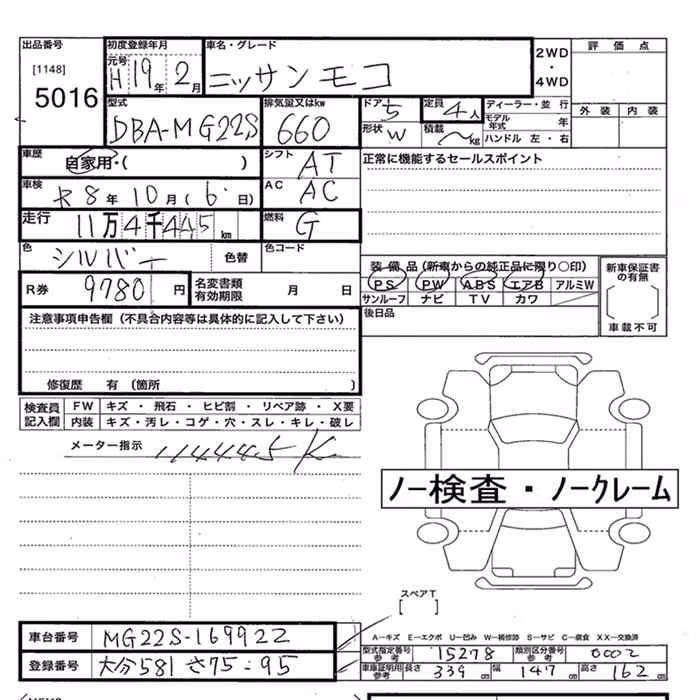 出品番号 初度登録年月 車名・グレード 2WD・4WD 評価点
[1148] 元号
5016 H19年2月 ニッサンモコ
型式 排気量又はkw ドア 定員 ディーラー・並行 外装 内装
DBA-MG22S 660 5 4人 モデル年式 年
形状 W 積載 kg ハンドル 左・右
車歴 自家用・( ) シフト AT 正常に機能するセールスポイント
車検 R8年10月(6日) AC AC
走行 11万4千445km 燃料 G
色 シルバー 色替 色コード
装備品(新車からの純正品に限り○印) 新車保証書の有無
R券 9780円 名変書類有効期限 月 日 PS PW ABS エアB アルミW [ ]
サンルーフ ナビ TV カワ 車載不可
注意事項申告欄(不具合内容等は具体的に記入して下さい) 後日品
修復歴 有(箇所 )
検査員記入欄 FW キズ・飛石・ヒビ割・リペア跡・X要
内装 キズ・汚レ・コゲ・穴・スレ・キレ・破レ
メーター指示 114445K
ノー検査・ノークレーム
スペアT
[ ]
車台番号 MG22S-169922 A−キズ E−エクボ U−凹み W−補修跡 S−サビ C−腐食 XX−交換済
型式指定番号参考 15278 類別区分番号参考 0002
登録番号 大分581 さ75-95 車庫証明用参考 長さ 339cm 幅 147cm 高さ 162cm
MEMO